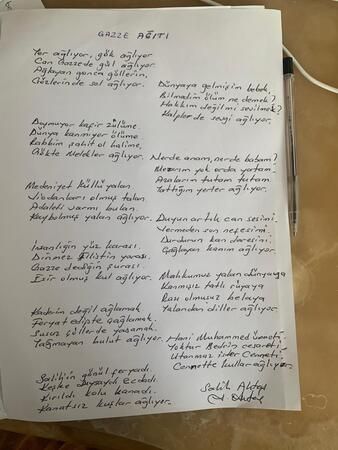 GAZZE AĞITI
Yer ağlıyor, gök ağlıyor
Can Gazzede gül ağlıyor.
Ağlayan gonca güllerin,
Gözlerinde sel ağlıyor.
Dünyaya gelmişim bebek,
Bilmedim ölüm ne demek?
Hakkım değilmi sevilmek?
Kalplerde sevgi ağlıyor.
Doymuyor kafir zülüme.
Dünya kanmıyor ölüme.
Rabbim şahit ol halime,
Gökte Melekler ağlıyor.
Nerde anam, nerde babam?
Mezarım yok orda yatam.
Azalarım tutam tutam.
Tattığım yerler ağlıyor.
Medeniyet küllü yalan.
Vicdanları olmuş talan.
Adaleti varmı bulan.
Kaybolmuş yalan ağlıyor.
Duyun artık can sesimi.
Vermeden son nefesimi.
Durdurun kan deresini.
Çağlayan kanım ağlıyor.
İnsanlığın yüz karası.
Dinmez Filistin yarası.
Gazze dediğin şurası.
Esir olmuş kul ağlıyor.
Mahkumuz yalan dünyaya
Kanmışız tatlı rüyaya
Razı olmuşuz belaya
Yalandan diller ağlıyor.
Kaderim değil ağlamak.
Feryat edipte çağlamak.
Susuz çöllerde yaşamak.
Yağmayan bulut ağlıyor.
Hani Muhammed ümmeti.
Yoktur Bedrin cesareti.
Utanmaz ister Cenneti.
Cennette kullar ağlıyor.
Salih'in gönül feryadı.
Keşke duysaydı Ecdadı.
Kırıldı kolu kanadı.
Kanatsız kuşlar ağlıyor.
Salih Aktaş